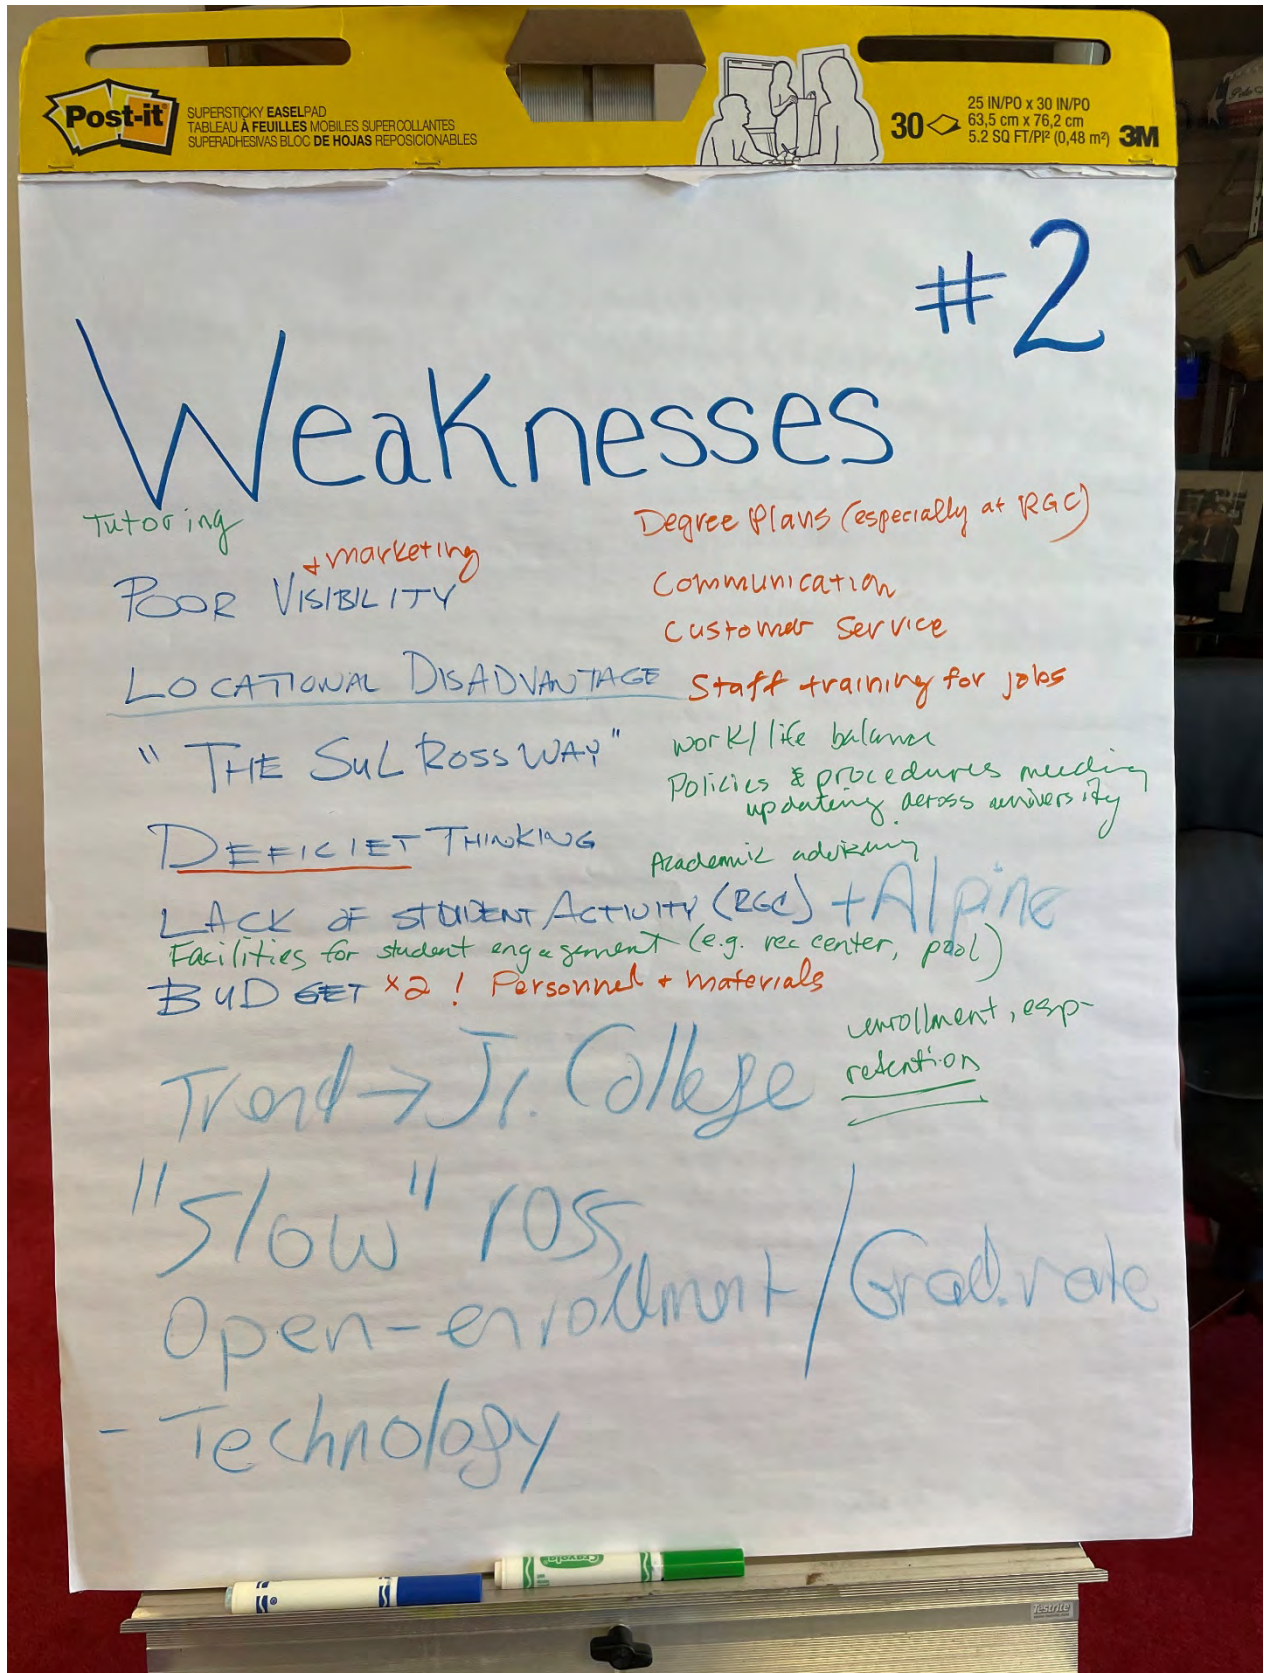 Post-it®
SUPERSTICKY EASELPAD
TABLEAU À FEUILLES MOBILES SUPER COLLANTES
SUPERADHESIVAS BLOC DE HOJAS REPOSICIONABLES
30
25 IN/PO x 30 IN/PO
63,5 cm x 76,2 cm
5.2 SQ FT/PI² (0,48 m²)
3M
#2
Weaknesses
Tutoring
+ marketing
POOR VISIBILITY
LOCATIONAL DISADVANTAGE
"THE SUL ROSS WAY"
DEFICIET THINKING
LACK OF STUDENT ACTIVITY (RGC) + Alpine
Facilities for student engagement (e.g. rec center, pool)
BUDGET x2! Personnel + materials
Degree Plans (especially at RGC)
Communication
Customer Service
Staff training for jobs
work/life balance
Policies & procedures needing
updating across university
Academic advising
enrollment, esp-
retention
Trend → Jr. College
"Slow" ross
Open-enrollment / Grad. rate
- Technology
Crayola
Testrite